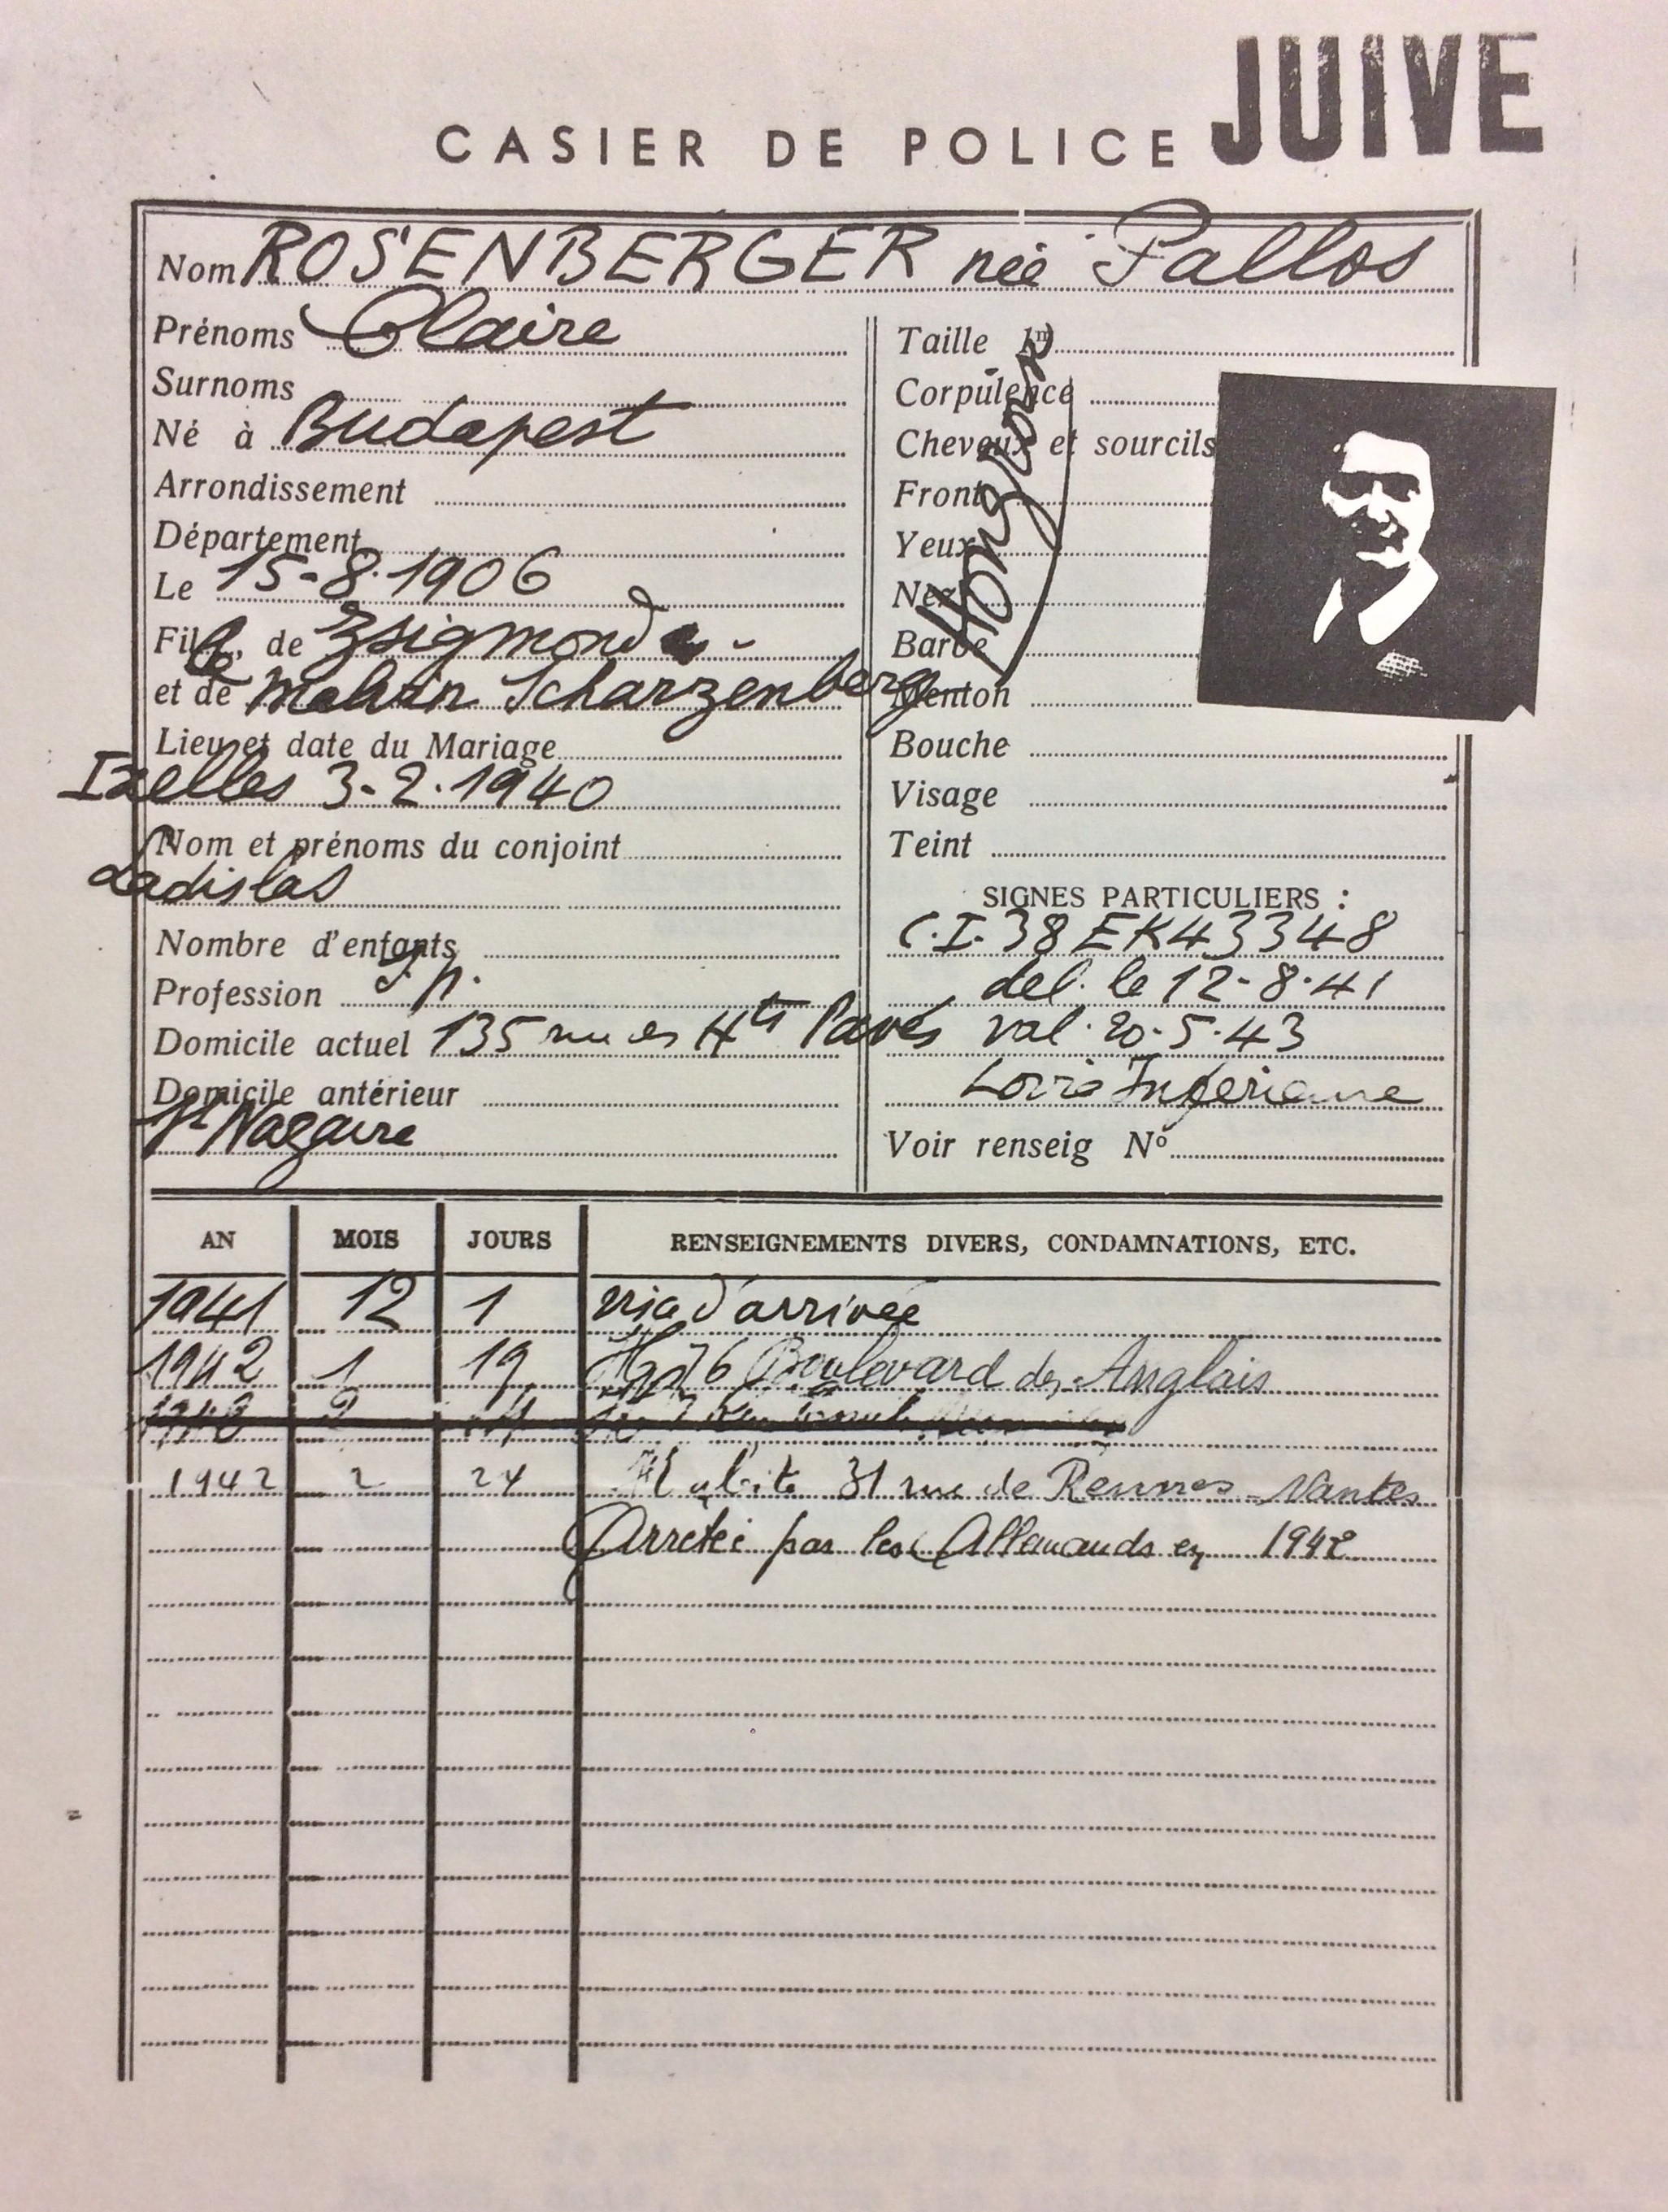 JUIVE
CASIER DE POLICE
Nom ROSENBERGER née Pallos
Prénoms Claire
Surnoms
Né à Budapest
Arrondissement
Département
Le 15-8-1906
Fille de Zsigmond
et de Malvin Scharzenberg
Lieu et date du Mariage
Ixelles 3-2-1940
Nom et prénoms du conjoint
Ladislas
Nombre d'enfants
Profession s.p.
Domicile actuel 135 rue des Hts Pavés
Domicile antérieur
St Nazaire
Taille 1m
Corpulence
Cheveux et sourcils
Front
Yeux
Nez
Barbe
Menton
Bouche
Visage
Teint
Hongroise
SIGNES PARTICULIERS :
C.I. 38 EK43348
del. le 12-8-41
val. 20-5-43
Loire Inférieure
Voir renseig No
AN MOIS JOURS RENSEIGNEMENTS DIVERS, CONDAMNATIONS, ETC.
1941 12 1 visa d'arrivée
1942 1 19 76 Boulevard des Anglais
1942 2 24 Habite 31 rue de Rennes Nantes
Arretée par les Allemands en 1942